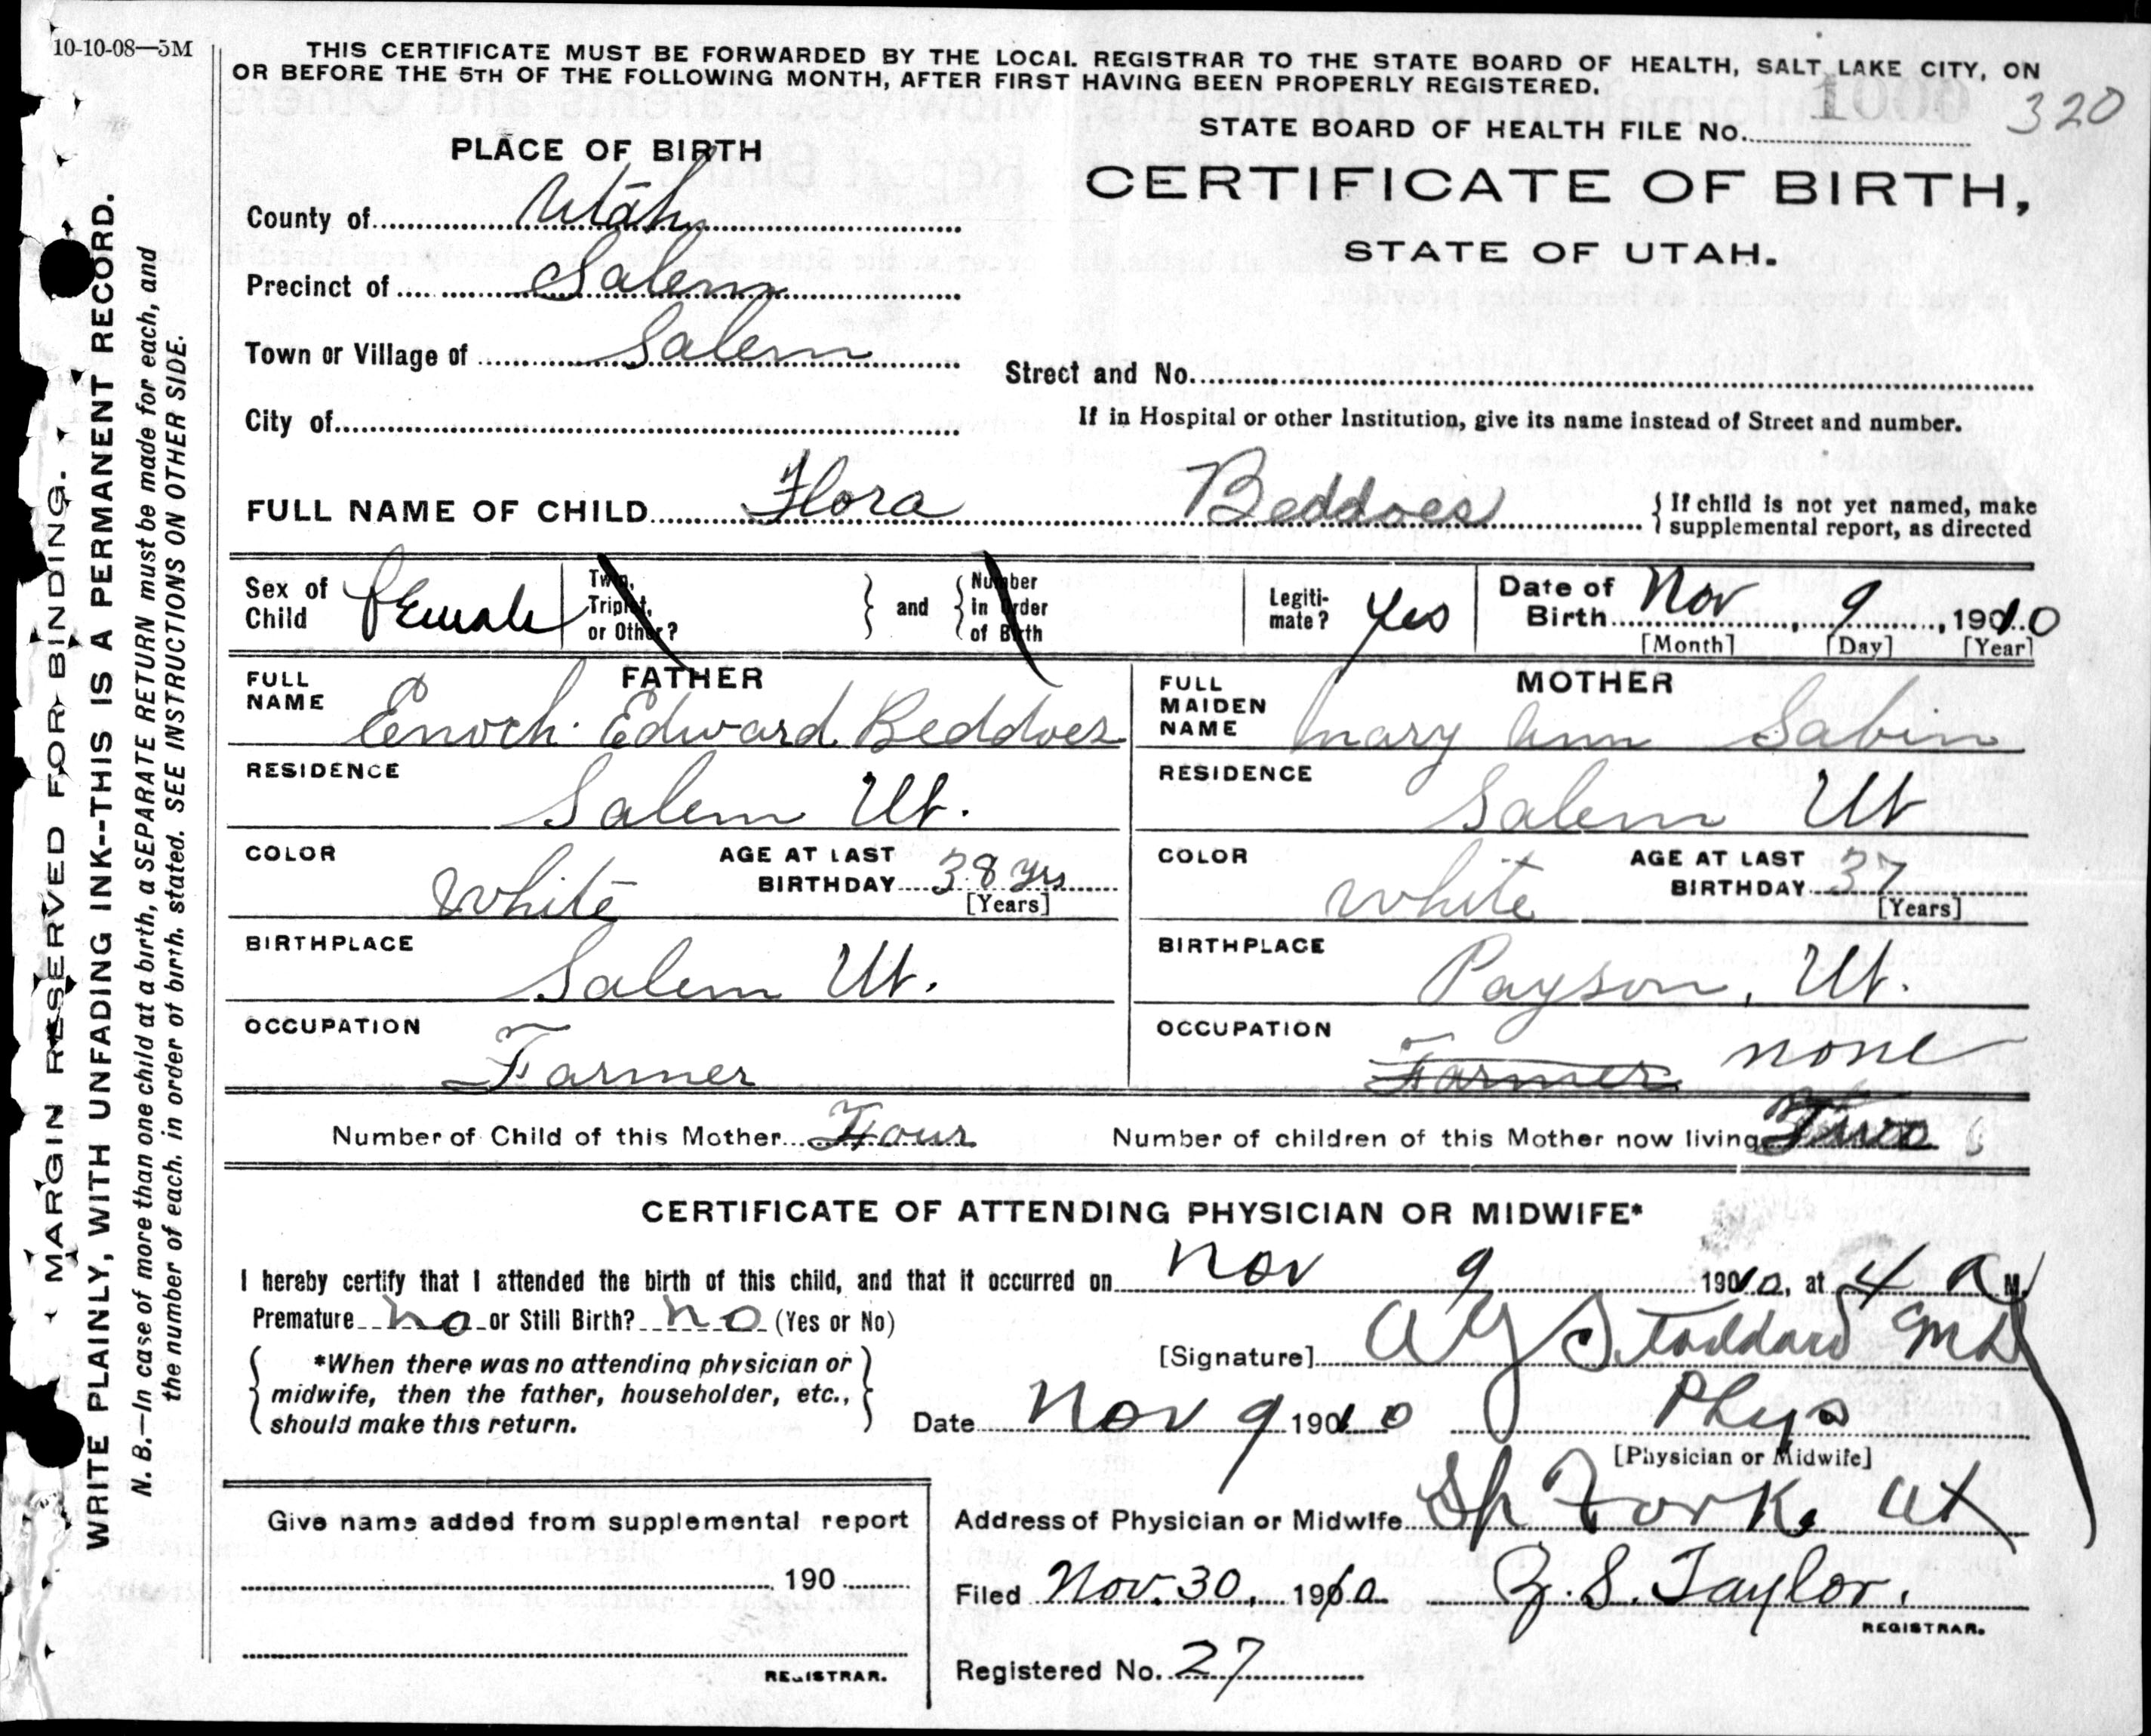 10-10-08—5M
THIS CERTIFICATE MUST BE FORWARDED BY THE LOCAL REGISTRAR TO THE STATE BOARD OF HEALTH, SALT LAKE CITY, ON
OR BEFORE THE 5TH OF THE FOLLOWING MONTH, AFTER FIRST HAVING BEEN PROPERLY REGISTERED.
1000 320
STATE BOARD OF HEALTH FILE No.
CERTIFICATE OF BIRTH,
STATE OF UTAH.
PLACE OF BIRTH
County of Utah
Precinct of Salem
Town or Village of Salem
City of
Street and No.
If in Hospital or other Institution, give its name instead of Street and number.
FULL NAME OF CHILD Flora Beddoes
{ If child is not yet named, make
supplemental report, as directed
Sex of Child Female
Twin, Triplet, or Other? } and { Number in Order of Birth
Legitimate? Yes
Date of Birth Nov 9, 1910
[Month] [Day] [Year]
FATHER
FULL NAME Enoch Edward Beddoes
RESIDENCE Salem Ut.
COLOR White
AGE AT LAST BIRTHDAY 38 yrs
[Years]
BIRTHPLACE Salem Ut.
OCCUPATION Farmer
MOTHER
FULL MAIDEN NAME Mary Ann Sabin
RESIDENCE Salem Ut
COLOR White
AGE AT LAST BIRTHDAY 37
[Years]
BIRTHPLACE Payson, Ut.
OCCUPATION Farmer none
Number of Child of this Mother Four
Number of children of this Mother now living
CERTIFICATE OF ATTENDING PHYSICIAN OR MIDWIFE*
I hereby certify that I attended the birth of this child, and that it occurred on Nov 9 1910, at 4 a M.
Premature no or Still Birth? no (Yes or No)
*When there was no attending physician or
midwife, then the father, householder, etc.,
should make this return.
[Signature] Stoddard MD
Date Nov 9 1910
Phys
[Physician or Midwife]
Address of Physician or Midwife Sp Fork Ut
Filed Nov. 30, 1910 Z. S. Taylor.
REGISTRAR.
Registered No. 27
Give name added from supplemental report
190
REGISTRAR.
MARGIN RESERVED FOR BINDING.
WRITE PLAINLY, WITH UNFADING INK--THIS IS A PERMANENT RECORD.
N. B.—In case of more than one child at a birth, a SEPARATE RETURN must be made for each, and
the number of each, in order of birth, stated. SEE INSTRUCTIONS ON OTHER SIDE.